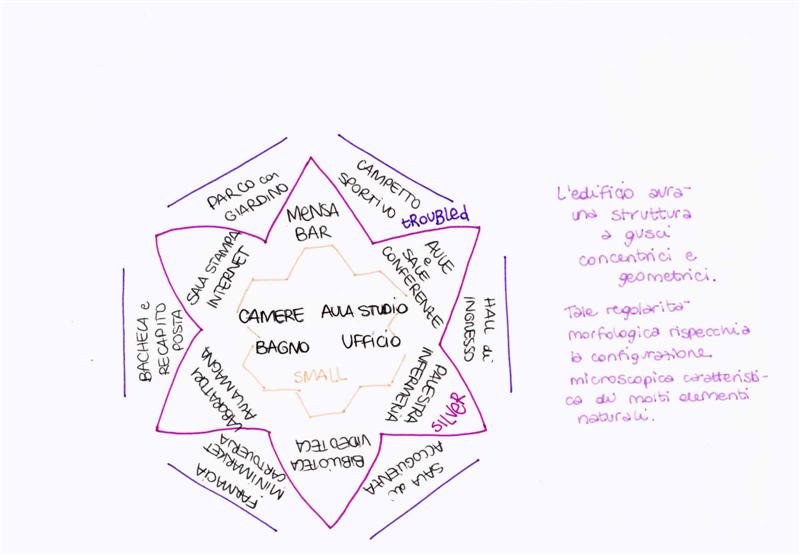 PARCO con
GIARDINO
CAMPETTO
SPORTIVO
tROUBLEd
MENSA
BAR
SALA STAMPA
INTERNET
AULE
e
SALE
CONFERENZE
BACHECA e
RECAPITO
POSTA
HALL di
INGRESSO
CAMERE AULA STUDIO
BAGNO UFFICIO
SMALL
LABORATORI
AULA MAGNA
PALESTRA
INFERMERIA
SILVER
BIBLIOTECA
VIDEOTECA
FARMACIA
MINIMARKET
CARTOLERIA
SALA di
ACCOGLIENZA
L'edificio avrà
una struttura
a gusci
concentrici e
geometrici.
Tale regolarità
morfologica rispecchia
la configurazione
microscopica caratteristi-
ca di molti elementi
naturali.